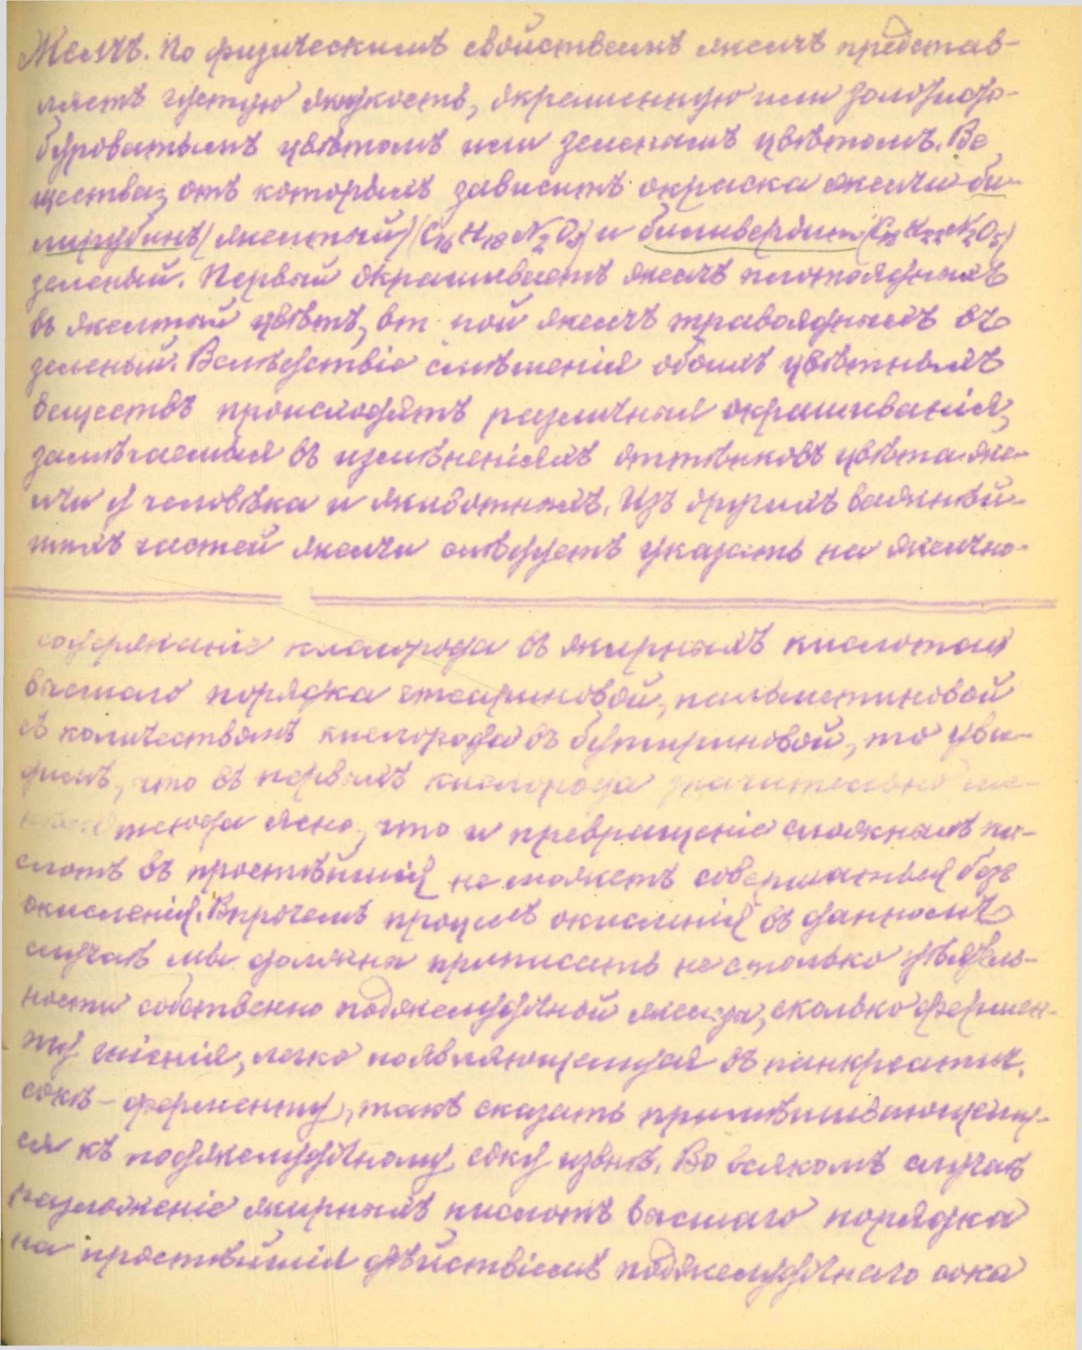 Желчь. По физическимъ свойствамъ желчь представ-
ляетъ густую жидкость, окрашенную или золотисто-
буроватымъ цвѣтомъ или зеленымъ цвѣтомъ. Ве
щества, отъ которыхъ зависитъ окраска желчи би-
лирубинъ (желтый) (C16 H18 N2 O3) и биливердинъ
зеленый. Первый окрашиваетъ желчь плотоядныхъ
въ желтый цвѣтъ, вт рой желчь травоядныхъ въ
зеленый. Вслѣдствіе смѣшенія обоихъ цвѣтныхъ
веществъ происходятъ различныя окрашиванія,
замѣчаемыя въ измѣненіяхъ оттѣнковъ цвѣта же-
лчи у человѣка и животныхъ. Изъ другихъ важнѣй-
шихъ частей желчи слѣдуетъ указать на желчно-
содержаніе кислорода въ жирныхъ кислотахъ
высшаго порядка стеариновой, пальметиновой
съ количествомъ кислорода въ бутириновой, то уви-
димъ, что въ первыхъ кислорода значительно ме-
отсюда ясно, что и превращеніе сложныхъ ки-
слотъ въ простѣйшія не можетъ совершаться безъ
окисленія. Впрочемъ процессъ окисленія въ данномъ
случаѣ мы должны приписать не столько дѣятель-
ности собственно поджелудочной железы, сколько фермен-
ту гніенія, легко появляющемуся въ панкреатич.
сокѣ – ферменту, такъ сказать примѣшивающему-
ся къ поджелудочному соку извнѣ. Во всякомъ случаѣ
разложеніе жирныхъ кислотъ высшаго порядка
на простѣйшія дѣйствіемъ поджелудочнаго сока